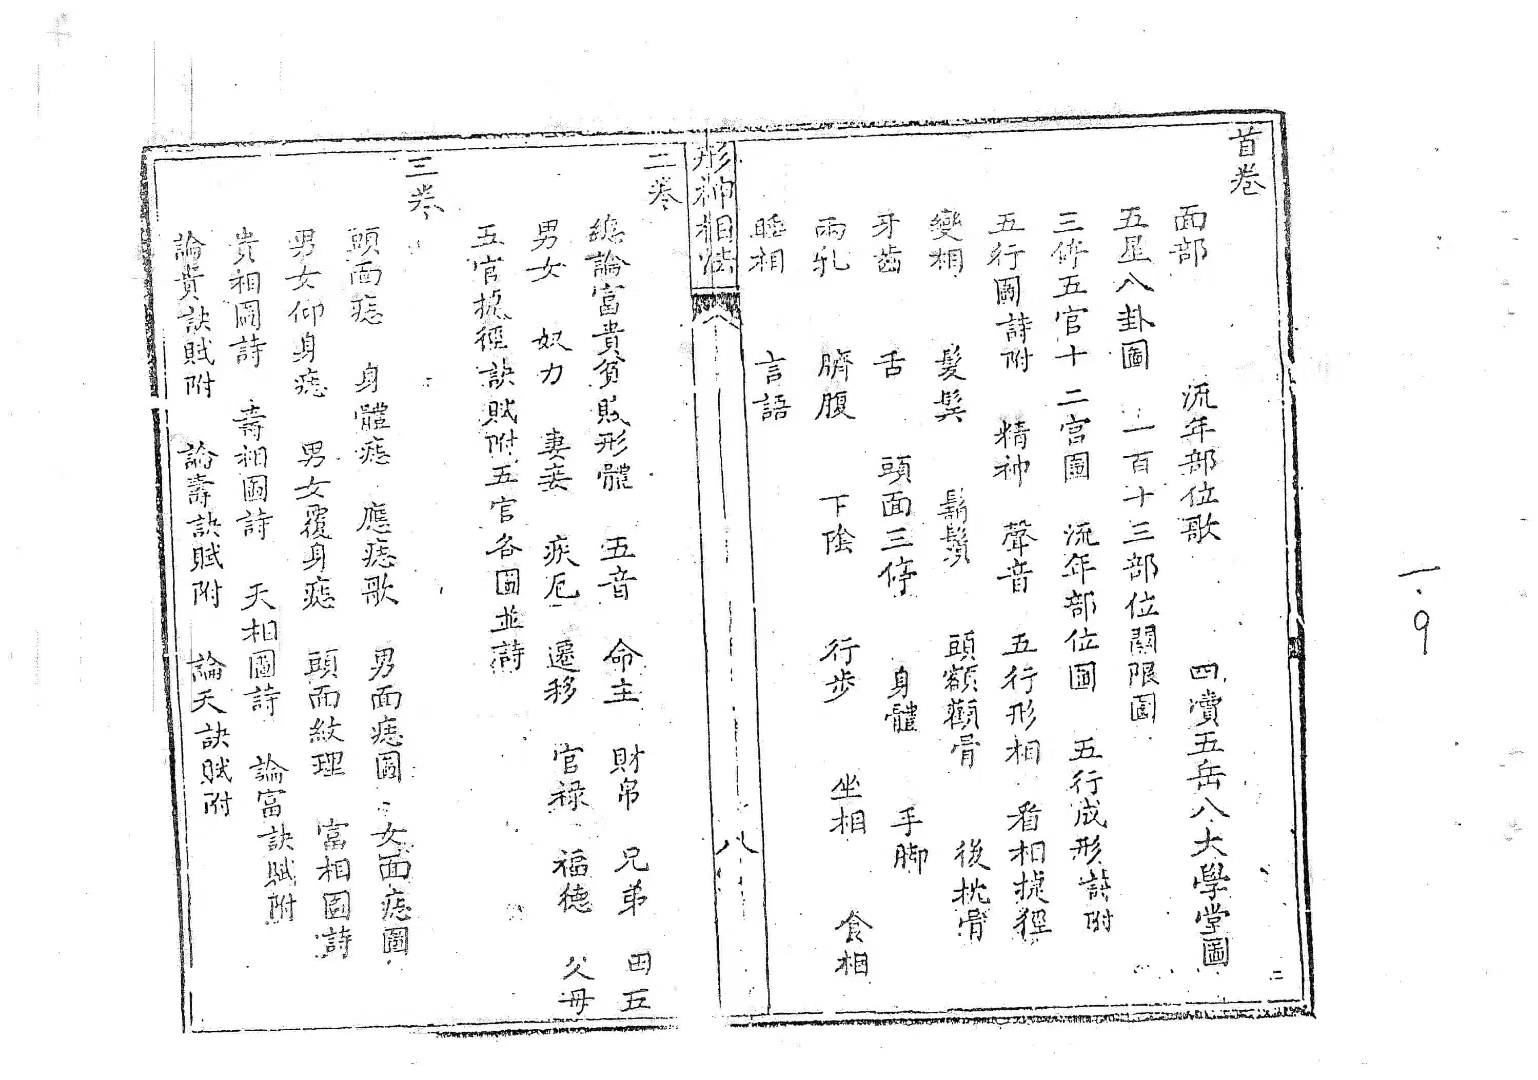 首卷
面部　流年部位歌　四瀆五岳八大學堂圖
五星八卦圖　一百十三部位關限圖
三停五官十二宮圖　流年部位圖　五行成形詩附
五行圖詩附　精神　聲音　五行形相　看相捷徑
變相　髮鬂　鬍鬚　頭額顴骨　後枕骨
牙齒　舌　頭面三停　身體　手脚
兩乳　臍腹　下陰　行步　坐相　食相
睡相　言語
形神相法
八
二卷
總論富貴貧賤形體　五音　命主　財帛　兄弟　田五
男女　奴力　妻妾　疾厄　遷移　官祿　福德　父母
五官捷徑訣賦附五官各圖並詩
三卷
頭面痣　身體痣　應痣歌　男面痣圖　女面痣圖
男女仰身痣　男女覆身痣　頭面紋理　富相圖詩
貴相圖詩　壽相圖詩　夭相圖詩　論富訣賦附
論貴訣賦附　論壽訣賦附　論夭訣賦附
一.9